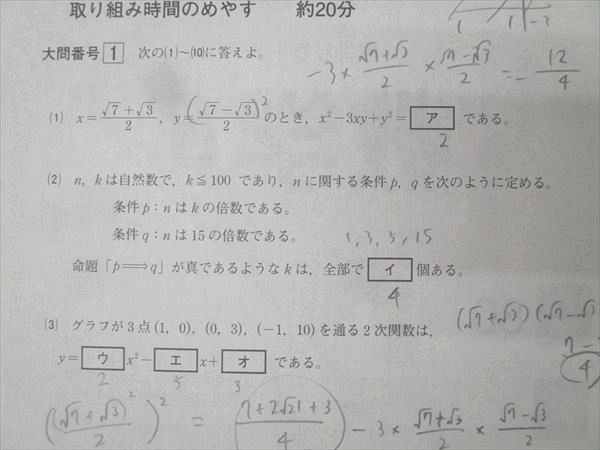 取り組み時間のめやす 約20分
1 1 -3
大問番号 1 次の(1)~(10)に答えよ。
-3× (√7+√3)/2 × (√7-√3)/2 = - 12/4
(1) x=(√7+√3)/2, y=(√7-√3)/2 のとき, x²-3xy+y²= ア である。
2
(2) n, kは自然数で, k≦100 であり, nに関する条件p, qを次のように定める。
条件p:nはkの倍数である。
条件q:nは15の倍数である。
1, 3, 5, 15
命題「p⟹q」が真であるようなkは, 全部で イ 個ある。
4
(3) グラフが3点(1, 0), (0, 3), (-1, 10)を通る2次関数は,
(√7+√3)(√7-√3
y= ウ x²- エ x+ オ である。
2 5 3
7-
4
((√7+√3)/2)² = (7+2√21+3)/4 -3× (√7+√3)/2 × (√7-√3)/2